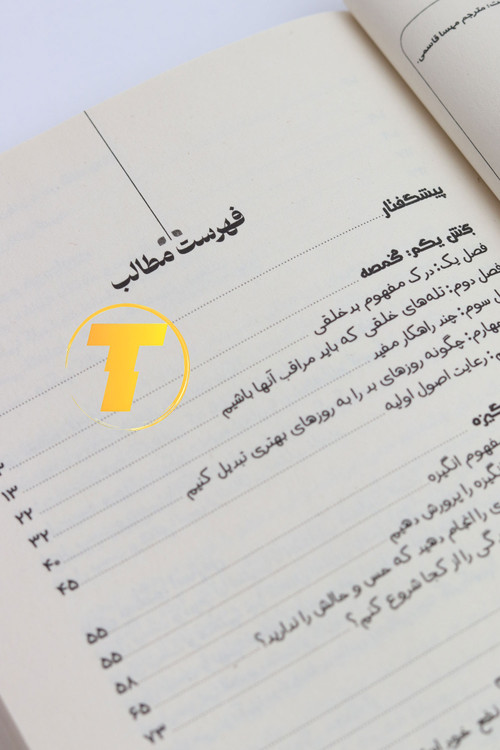 مترجم مهسا قاسمی.
فهرست مطالب
پیشگفتار
بخش یکم: مخمصه
فصل یک: درک مفهوم بدخلقی ۱۳
فصل دوم: تله‌های خلقی که باید مراقب آنها باشیم ۲۲
سوم: چند راهکار مفید ۳۲
چهارم: چگونه روزهای بد را به روزهای بهتری تبدیل کنیم ۴۰
رعایت اصول اولیه ۴۵
مفهوم انگیزه ۵۵
را پرورش دهیم ۵۵
را انجام دهید که حس و حالش را ندارید؟ ۵۸
را از کجا شروع کنم؟ ۶۵
۷۳
T